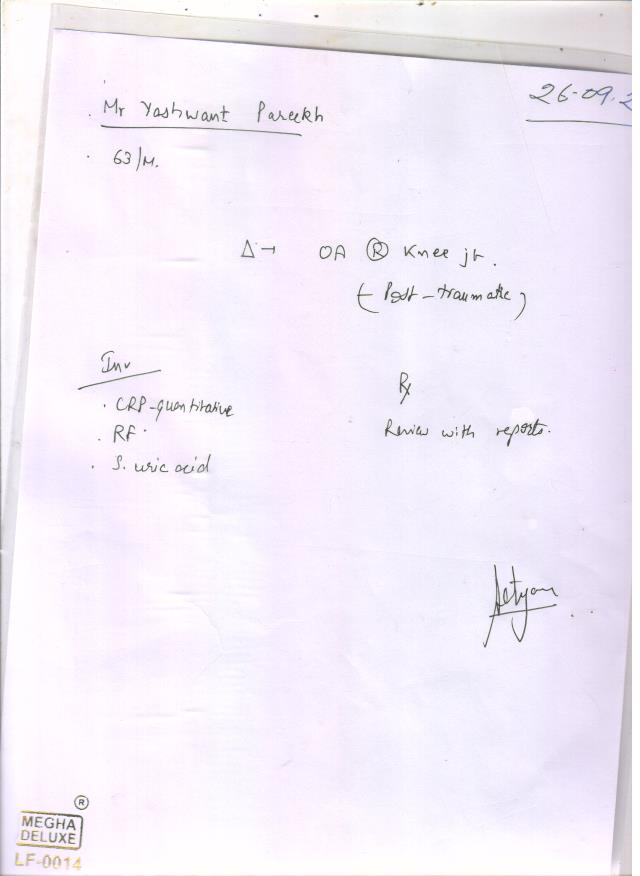 26-09.2
Mr Yashwant Pareekh
63/M.
Δ→ OA Ⓡ Knee jt.
(Post-traumatic)
Inv
. CRP-quantitative
. RF
. S. uric acid
Rx
Review with reports.
®
MEGHA
DELUXE
LF-0014